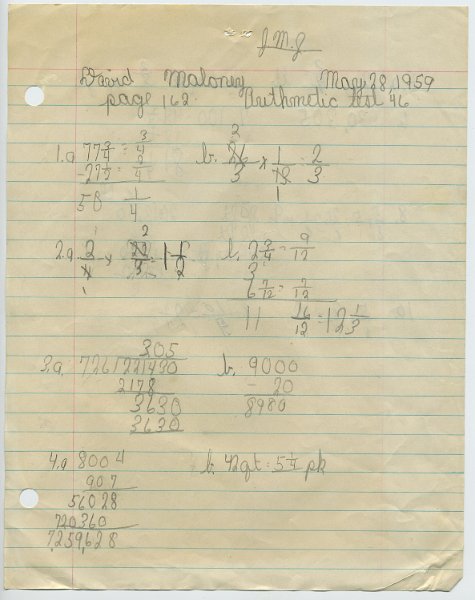 J.M.J.
David Maloney May 28, 1959
page 162 Arithmetic test 46
1.a 77 3/4 = 3/4
- 27 1/2 = 2/4
50 1/4
b. 2
26/3 x 1/13 = 2/3
1
2.a 1 2
b. 2 3/4 = 9/12
3
6 7/12 = 7/12
11 16/12 = 12 1/3
3.a. 305
726/221430
2178
3630
3630
b. 9000
- 20
8980
4.a 8004
907
56028
720360
7,259,628
b. 42qt = 5 1/4 pk